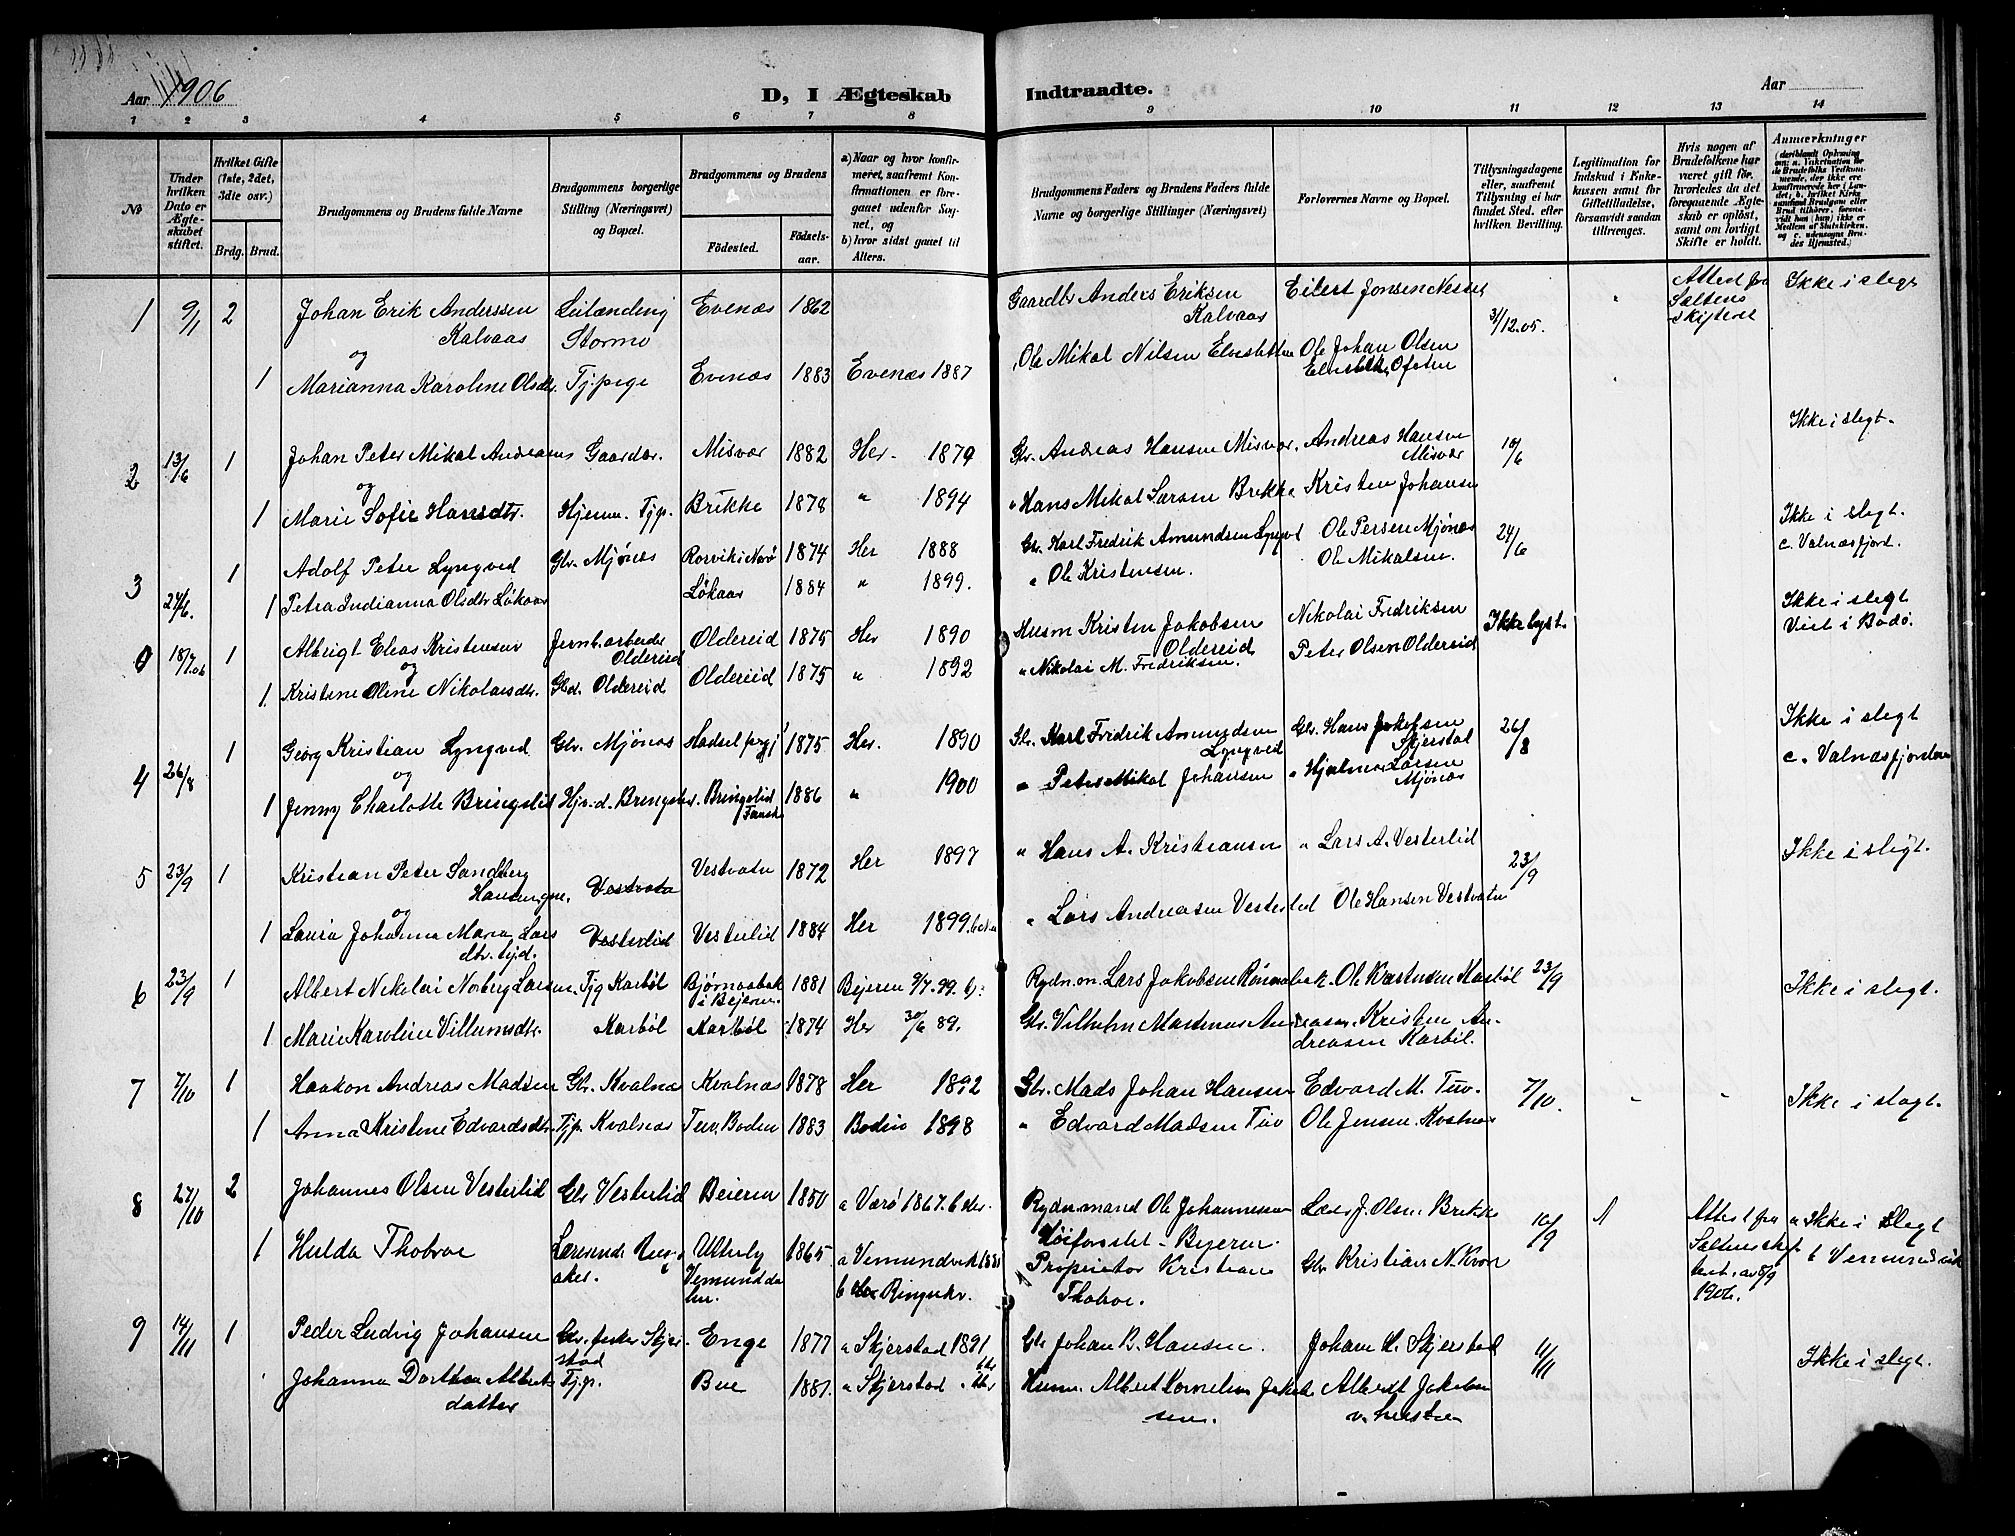 Aar 1906
D, I Ægteskab Indtraadte.
Aar
1 2 3 4 5 6 7 8 9 10 11 12 13 14
№
Under hvilken Dato er Ægteskabet stiftet.
Hvilket Gifte (1ste, 2det, 3die osv.)
Brdg. Brud.
Brudgommens og Brudens fulde Navne
Brudgommens borgerlige Stilling (Næringsvei) og Bopæl.
Brudgommens og Brudens
Födested.
Födselsaar.
a) Naar og hvor konfirmeret, saafremt Konfirmationen er foregaaet udenfor Sognet, og
b) hvor sidst gaaet til Alters.
Brudgommens Faders og Brudens Faders fulde Navne og borgerlige Stillinger (Næringsvei)
Forlovernes Navne og Bopæl.
Tillysningsdagene eller, saafremt Tillysning ei har fundet Sted, efter hvilken Bevilling.
Legitimation for Indskud i Enkekassen samt for Giftetilladelse, forsaavidt saadan tiltrænges.
Hvis nogen af Brudefolkene har været gift før, hvorledes da det foregaaende Ægteskab er oplöst, samt om lovligt Skifte er holdt.
Anmærkninger
1 9/1 2 Johan Erik Anderssen Kalvaas Leilænding Stormo Evenæs 1862 Gaardbr Anders Eriksen Kalvaas Eilert Jonsen 31/12.05. Attest fra Saltens skifteret Ikke i slegt
og
1 Marianna Karoline Olsdtr. Tj.pige Evenæs 1883 Evenæs 1887 Ole Mikal Nilsen Ole Johan Olsen Ofoten
2 13/6 1 Johan Peter Mikal Andreasens Gaardbr. Misvær 1882 Her 1879 Gbr. Andreas Hansen Misvær Andreas Hansen Misvær 10/6 Ikke i slegt.
og
1 Marie Sofie Hansdtr. Hjemm. Tjp. Brikke 1878 " 1894 " Hans Mikal Larsen Brekke Kristen Johansen
3 24/6. 1 Adolf Peter Lyngved Gbr. Mjønæs 1874 Her 1888 Gbr. Karl Fredrik Amundsen Lyngved Ole Persen Mjønæs 24/6 Ikke i slegt. c. Valnæsfjord.
1 Petra Indianna Olsdtr Løkaas Løkaas 1884 " 1899. " Ole Kristensen. Ole Mikalsen.
18/7.06 1 Albrigt Elias Kristensen Jernb.arbeider Oldereid Oldereid 1875 Her 1890 Husm Kristen Jakobsen Oldereid Nikolai Fredriksen Ikke lyst. Ikke i slegt Viet i Bodø.
og
1 Kristine Oline Nikolaisdtr. Gbd. Oldereid Oldereid 1875 " 1892 " Nikolai M. Fredriksen. Peter Olsen Oldereid
4 26/8 1 Georg Kristian Lyngved Gbr. Mjønæs Hadsel prgj 1875 Her. 1890 Gbr. Karl Fredrik Amundsen Lyngved Gbr. Hans Jakobsen Skjerstad 26/8 Ikke i slegt c. Valnæsfjorden
og
1 Jenny Charlotte Bringslid Hjv.d. Bringslid. Bringslid Fauske 1886 " 1900 " Peter Mikal Johansen " Hjalmer Larsen Mjønæs
5 23/9 1 Kristian Peter Sandberg Hansen Vestvatn Vestvatn 1872 Her 1897 " Hans A. Kristiansen " Lars A. Vesterlid 23/9 Ikke i slegt.
og
1 Laura Johanna Maria Larsdtr. Vesterlid Vesterlid 1884 Her 1899. " Lars Andreasen Vesterlid Ole Hansen Vestvatn
6 23/9 1 Albert Nikolai Norberg Larsen. Tjg Karbøl Bjørnaabak i Bejeren 1881 Bejeren 9/7. 99. Rydn.m. Lars Jakobsen Ole Karbøl 23/9 Ikke i slegt.
1 Marie Karoline Villumsdtr. Karbøl Karbøl 1874 Her 30/6 89. Gbr. Vilhelm Martinus Andreasen. Kristen Andreasen Karbøl.
7 7/10 1 Haakon Andreas Madsen Gbr. Kvalnæs Kvalnæs 1878 Her 1892 Gbr. Mads Johan Hansen Edvard M. Tuv. 7/10. " " Ikke i slegt.
1 Anna Kristine Edvardsdtr. Tjp. Kvalnæs Tuv. Boden 1883 Bodin 1898 " Edvard Madsen Tuv Ole Jensen Kvalnæs
8 27/10 2 Johannes Olsen Vesterlid Gbr Vesterlid Beieren 1850 a Værø 1867. b Her. Rydn.mand Ole Johannesen Høiforslet - Bejeren. Lars J. Olsen Brekke 10/9 1 Attest fra Saltens skifteret, av 8/9 1906. a Ikke i slegt
1 Hulda Thobroe Utterby Vemunddalen. 1865 a Vemundvik 1881 b Her Ringvkr. Proprietær Kristian Thobroe. Gbr Kristian N. Kron
9 14/11 1 Peder Ludvig Johansen Gbr. fisker Skjerstad Enge 1877 a Skjerstad 1891 Gbr Johan B. Hansen. Johan H. Skjerstad 11/11 Ikke i slegt.
Johanna Dorthea Albertdatter Tjp. Bue 1881. a Skjerstad Husm. Albert Kornelius Jakobsen. Albert Jakobsen